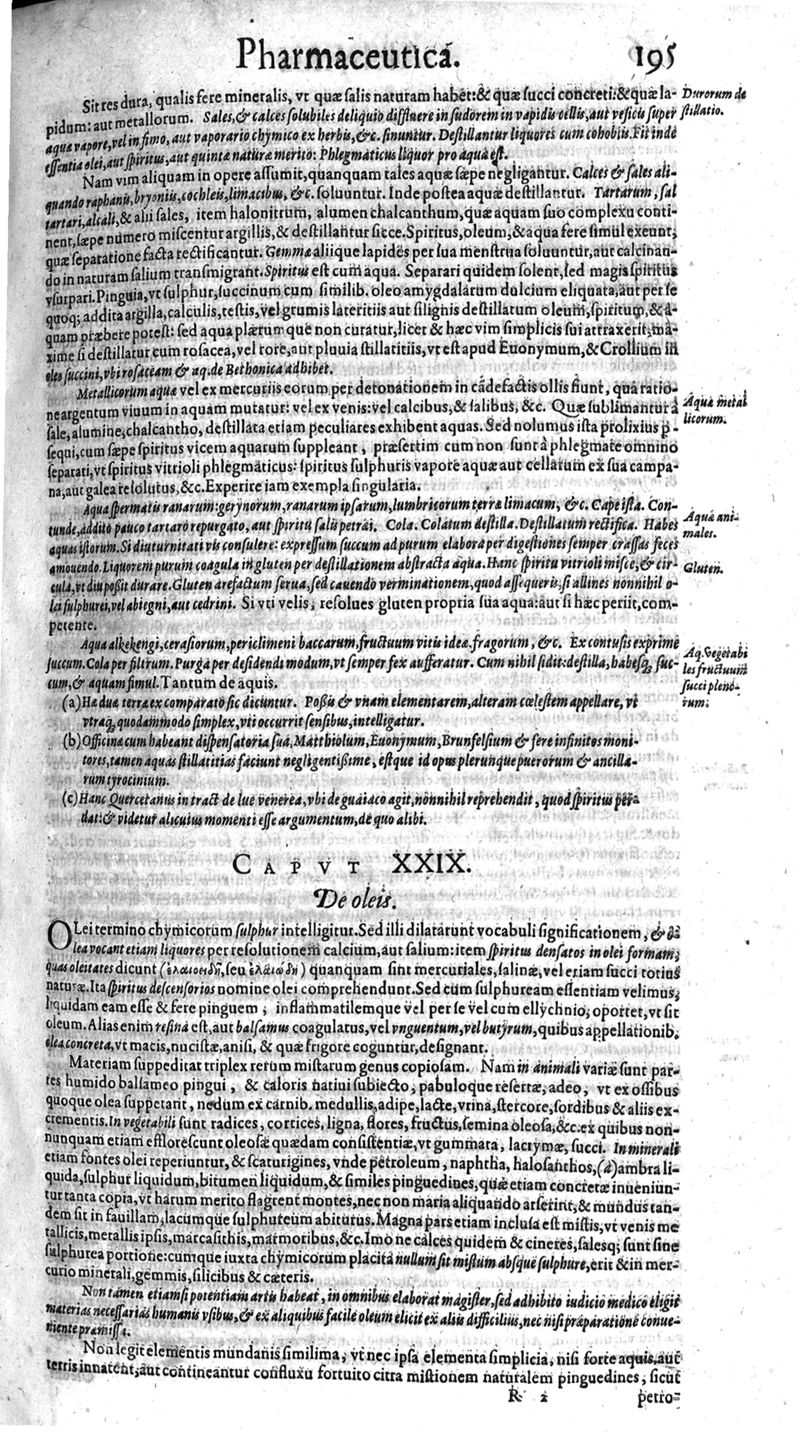 Pharmaceutica. 195
Sit res dura, qualis fere mineralis, vt quæ salis naturam habet: & quæ succi concreti: & quæ la-
pidum: aut metallorum. Sales, & calces solubiles deliquio diffluere in sudorem in vapidis cellis, aut vesicis super
aquæ vapore, vel in fimo, aut vaporario chymico ex herbis, &c. sinuntur. Destillantur liquores cum cohobiis. Fit inde
essentia olei, aut spiritus, aut quinta natura merito: Phlegmaticus liquor pro aqua est.
Durorum de
stillatio.
Nam vim aliquam in opere assumit, quanquam tales aquæ sæpe negligantur. Calces & sales ali-
quando raphanis, bryoniis, cochleis, limacibus, &c. soluuntur. Inde postea aquæ destillantur. Tartarum, sal
tartari, alcali, & alii sales, item halonitrum, alumen chalcanthum, quæ aquam suo complexu conti-
nent, sæpe numero miscentur argillis, & destillantur sicce. Spiritus, oleum, & aqua fere simul exeunt,
quæ separatione facta rectificantur. Gemmæ aliique lapides per sua menstrua soluuntur, aut calcinan-
do in naturam salium transmigrant. Spiritus est cum aqua. Separari quidem solent, sed magis spiritus
vsurpari. Pinguia, vt sulphur, succinum cum similib. oleo amygdalarum dulcium eliquata, aut per se
quoq; addita argilla, calculis, testis, vel grumis lateritiis aut silignis destillatum oleum, spiritum, & a-
quam præbere potest: sed aqua plærumque non curatur, licet & hæc vim simplicis sui attraxerit, ma-
xime si destillatur cum rosacea, vel rore, aut pluuia stillatitiis, vt est apud Euonymum, & Crollium in
oleo succini, vbi rosaceam & aq. de Bethonica adhibet.
Metallicorum aquæ vel ex mercuriis eorum per detonationem in cādefactis ollis fiunt, qua ratio-
ne argentum viuum in aquam mutatur: vel ex venis: vel calcibus, & salibus, &c. Quæ sublimantur à
sale, alumine, chalcantho, destillata etiam peculiares exhibent aquas. Sed nolumus ista prolixius p-
sequi, cum sæpe spiritus vicem aquarum suppleant, præsertim cum non sunt à phlegmate omnino
separati, vt spiritus vitrioli phlegmaticus: spiritus sulphuris vapore aquæ aut cellarum ex sua campa-
na, aut galea resolutus, &c. Experire iam exempla singularia.
Aquæ metal
licorum.
Aqua spermatis ranarum: gerynorum, ranarum ipsarum, lumbricorum terræ limacum, &c. Cape ista. Con-
tunde, addito pauco tartaro repurgato, aut spiritu salis petrai. Cola. Colatum destilla. Destillatum rectifica. Habes
aquas istorum. Si diuturnitati vis consulere: expressum succum ad purum elabora per digestiones semper crassas feces
amouendo. Liquorem purum coagula in gluten per destillationem abstracta aqua. Hanc spiritu vitrioli misce, & cir-
cula, vt diu possit durare. Gluten arefactum serua, sed cauendo verminationem, quod assequeris, si allines nonnihil o-
lei sulphurei, vel abiegni, aut cedrini. Si vti velis, resolues gluten propria sua aqua: aut si hæc periit, com-
petente.
Aquæ ani-
males.
Gluten.
Aqua alkekengi, cerasiorum, periclimeni baccarum, fructuum vitis ideæ, fragorum, &c. Ex contusis exprime
succum. Cola per filtrum. Purga per desidendi modum, vt semper fex aufferatur. Cum nihil sidit: destilla, habesq, suc-
cum, & aquam simul. Tantum de aquis.
Aq. Vegetabi
les fructuum
succi pleno-
rum.
(a) Hæ duæ terræ ex comparato sic dicuntur. Possis & vnam elementarem, alteram cœlestem appellare, vt
vtraq, quodammodo simplex, vti occurrit sensibus, intelligatur.
(b) Officinæ cum habeant dispensatoria sua, Matthiolum, Euonymum, Brunfelsium & fere infinitos moni-
tores, tamen aquas stillatitias faciunt negligentissime, estque id opus plerunque puerorum & ancilla-
rum tyrocinium.
(c) Hanc Quercetanus in tract de lue venerea, vbi de guaiaco agit, nonnihil reprehendit, quod spiritus per-
dat: & videtur alicuius momenti esse argumentum, de quo alibi.
CAPVT XXIX.
De oleis.
OLei termino chymicorum sulphur intelligitur. Sed illi dilatarunt vocabuli significationem, & o-
lea vocant etiam liquores per resolutionem calcium, aut salium: item spiritus densatos in olei formam,
quas oleitates dicunt (ἐλαιοειδῆ, seu ἐλαιώδη) quanquam sint mercuriales, salinæ, vel etiam succi totius
naturæ. Ita spiritus descensorios nomine olei comprehendunt. Sed cum sulphuream essentiam velimus,
liquidam eam esse & fere pinguem, inflammatilemque vel per se vel cum ellychnio, oportet, vt sit
oleum. Alias enim resina est, aut balsamus coagulatus, vel vnguentum, vel butyrum, quibus appellationib.
olea concreta, vt macis, nucistæ, anisi, & quæ frigore coguntur, designant.
Materiam suppeditat triplex rerum mistarum genus copiosam. Nam in animali variæ sunt par-
tes humido balsameo pingui, & caloris natiui subiecto, pabuloque refertæ, adeo, vt ex ossibus
quoque olea suppetant, nedum ex carnib. medullis, adipe, lacte, vrina, stercore, sordibus & aliis ex-
crementis. In vegetabili sunt radices, cortices, ligna, flores, fructus, semina oleosa, &c. ex quibus non-
nunquam etiam efflorescunt oleosæ quædam consistentiæ, vt gummata, lacrymæ, succi. In minerali
etiam fontes olei reperiuntur, & scaturigines, vnde petroleum, naphtha, halosanthos, (a) ambra li-
quida, sulphur liquidum, bitumen liquidum, & similes pinguedines, quæ etiam concretæ inueniun-
tur tanta copia, vt harum merito flagrent montes, nec non maria aliquando arserint, & mundus tan-
dem sit in fauillam, lacumque sulphureum abiturus. Magna pars etiam inclusa est mistis, vt venis me
tallicis, metallis ipsis, marcasithis, marmoribus, &c. Imo ne calces quidem & cineres, salesq; sunt sine
sulphurea portione: cumque iuxta chymicorum placita nullum sit mistum absque sulphure, erit & in mer-
curio minerali, gemmis, silicibus & cæteris.
Non tamen etiamsi potentiam artis habeat, in omnibus elaborat magister, sed adhibito iudicio medico eligit
materias necessarias humanis vsibus, & ex aliquibus facile oleum elicit ex aliis difficilius, nec nisi præparatione conue-
niente præmissa.
Non legit elementis mundanis simillima, vt nec ipsa elementa simplicia, nisi forte aquis, aut
terris innatent, aut contineantur confluxu fortuito citra mistionem naturalem pinguedines, sicut
R 2 petro-